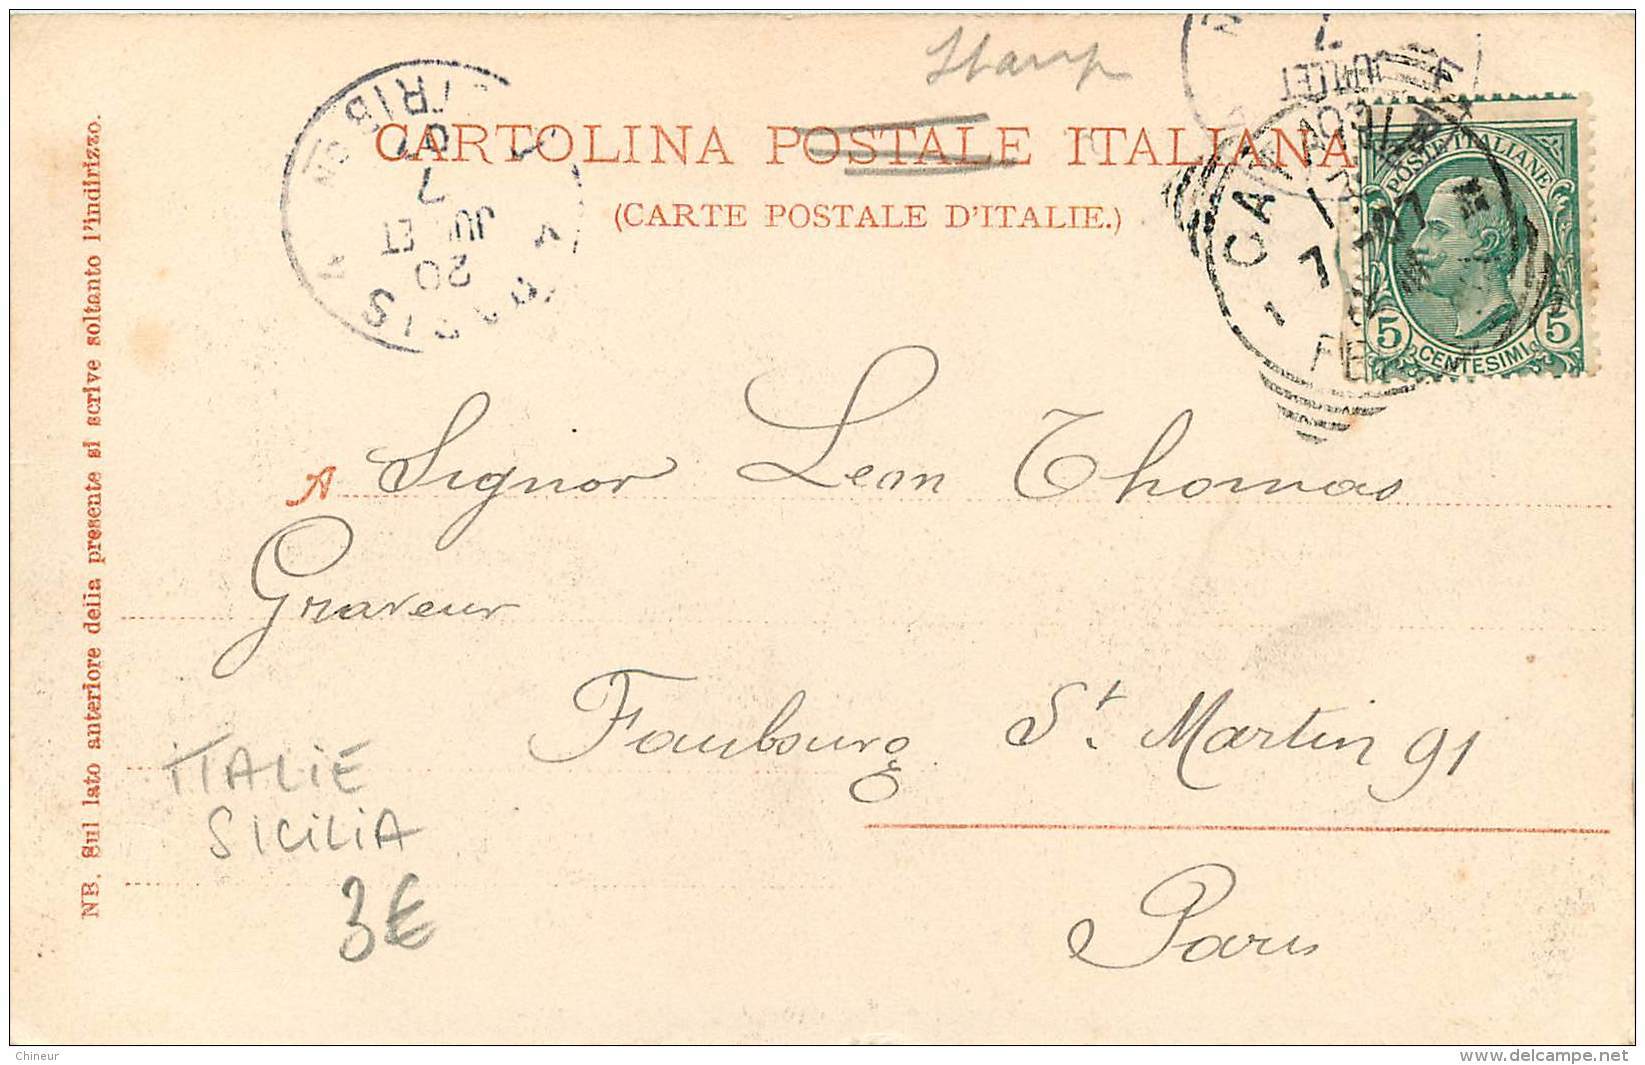 Stamp
CARTOLINA POSTALE ITALIANA
(CARTE POSTALE D'ITALIE.)
POSTE ITALIANE
5 CENTESIMI 5
20
JUILLET
7
A Signor Leon Thomas
Graveur
Faubourg St. Martin 91
Paris
ITALIE
SICILIA
3€
NB. Sul lato anteriore della presente si scrive soltanto l'indirizzo.
Chineur
www.delcampe.net